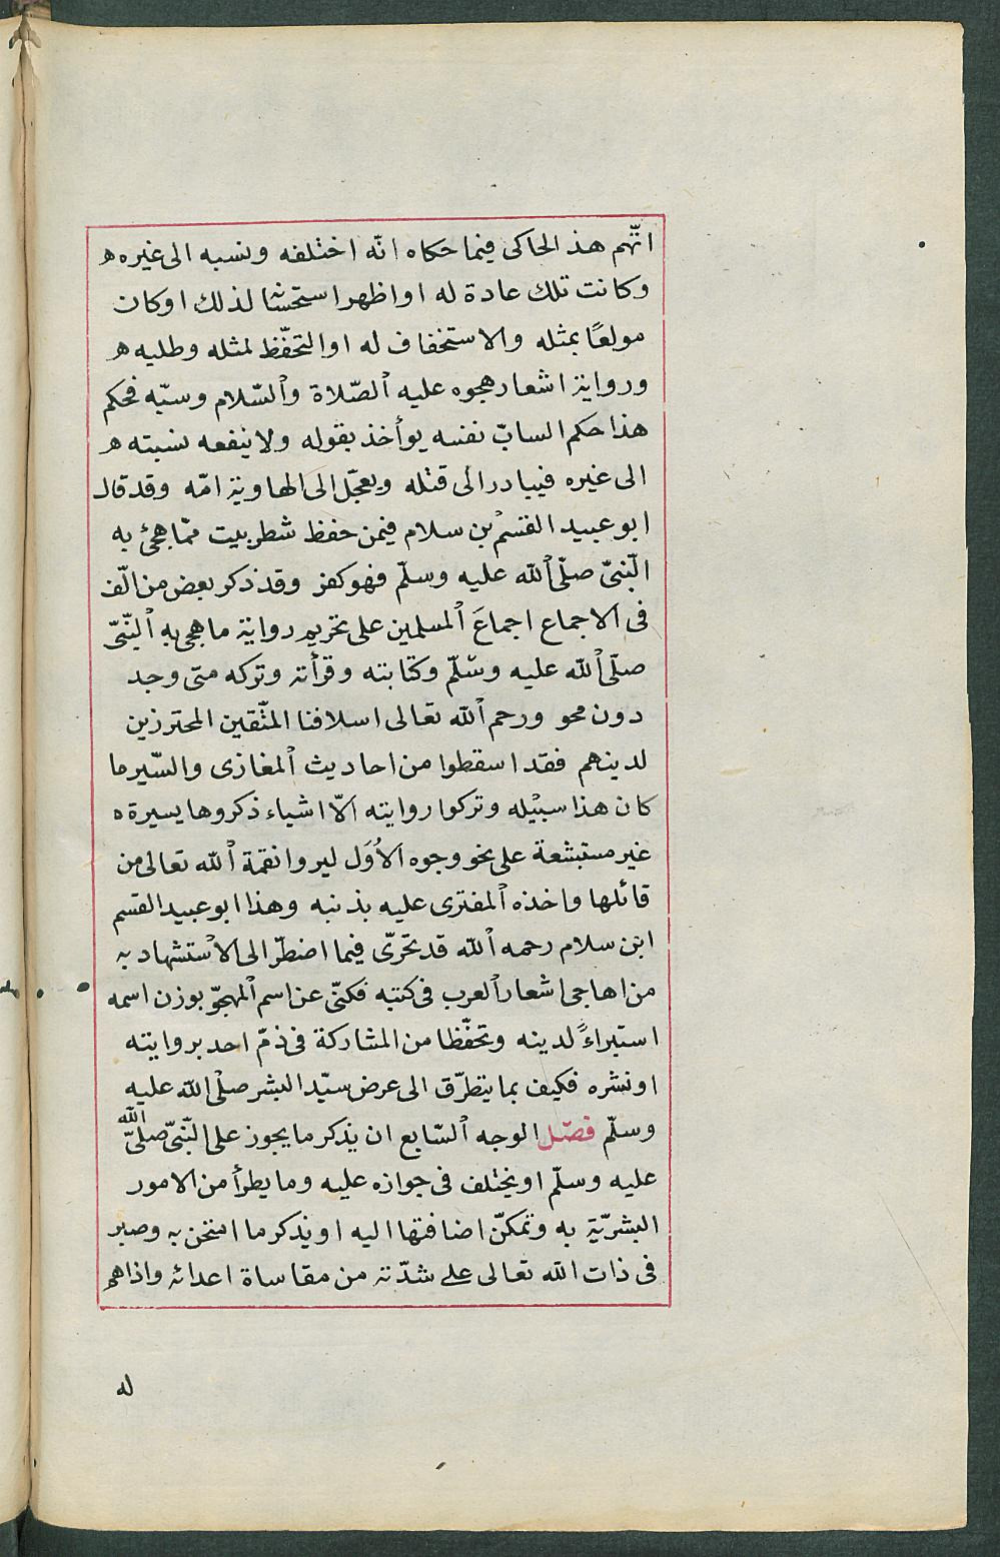 اتّهم هذا الحاكى فيما حكاه انّه اختلفه ونسبه الى غيره ه
وكانت تلك عادة له او اظهر استحسانه لذلك او كان
مولعًا بمثله والاستخفاف له او التحفّظ لمثله وطلبه ه
ورواية اشعار هجوه عليه الصّلاة والسّلام وسبّه فحكم
هذا حكم السابّ نفسه يوأخذ بقوله ولا ينفعه نسبته ه
الى غيره فيبادر الى قتله ويعجّل الى الهاوية امّه وقد قال
ابو عبيد القسم بن سلام فيمن حفظ شطر بيت ممّا هجئ به
النّبىّ صلّى الله عليه وسلّم فهو كفر وقد ذكر بعض من الّف
فى الاجماع اجماعَ المسلمين على تحريم رواية ما هجى به النّبىّ
صلّى الله عليه وسلّم وكتابته وقرأته وتركه متى وجد
دون محو ورحم الله تعالى اسلافنا المتّقين المحترزين
لدينهم فقد اسقطوا من احاديث المغازى والسّير ما
كان هذا سبيله وتركوا روايته الّا اشياء ذكروها يسيرة ه
غير مستبشعة على نحو وجوه الاُوَل ليروا نقمة الله تعالى من
قائلها واخذه المفترى عليه بذنبه وهذا ابو عبيد القسم
ابن سلام رحمه الله قد تحرّى فيما اضطرّ الى الاستشهاد به
من اهاجى اشعار العرب فى كتبه فكنّى عن اسم المهجوّ بوزن اسمه
استبراءً لدينه وتحفّظا من المشاركة فى ذمّ احد بروايته
او نشره فكيف بما يتطرّق الى عرض سيّد البشر صلّى الله عليه
وسلّم فصّل الوجه السّابع ان يذكر ما يجوز على النّبىّ صلّى الله
عليه وسلّم او يختلف فى جوازه عليه وما يطرأ من الامور
البشريّة به وتمكنّ اضافتها اليه او يذكر ما امتحن به وصبر
فى ذات الله تعالى على شدّته من مقاساة اعدائه واذاهم
له